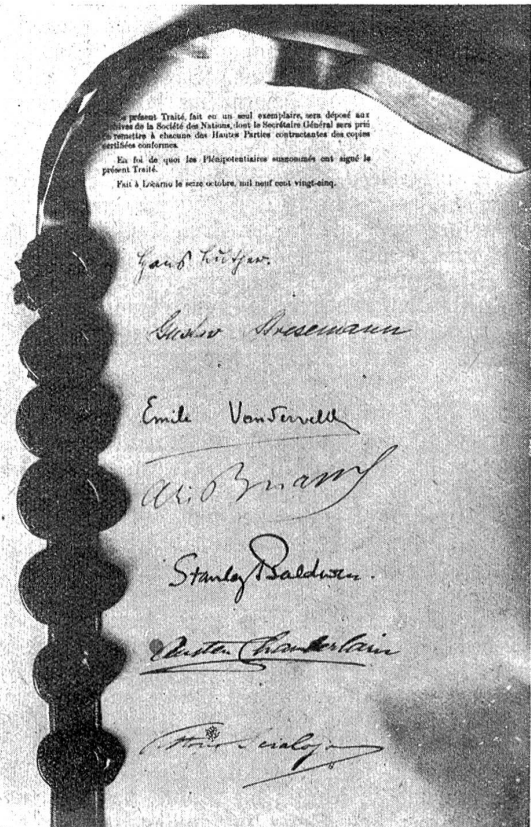 présent Traité, fait en un seul exemplaire, sera déposé aux
archives de la Société des Nations, dont le Secrétaire Général sera prié
remettre à chacune des Hautes Parties contractantes des copies
certifiées conformes.
En foi de quoi les Plénipotentiaires susnommés ont signé le
présent Traité.
Fait à Locarno le seize octobre, mil neuf cent vingt-cinq.
Hans Luther.
Gustav Stresemann
Emile Vandervelde
Ari Briand
Stanley Baldwin.
Austen Chamberlain
Vittorio Scialoja